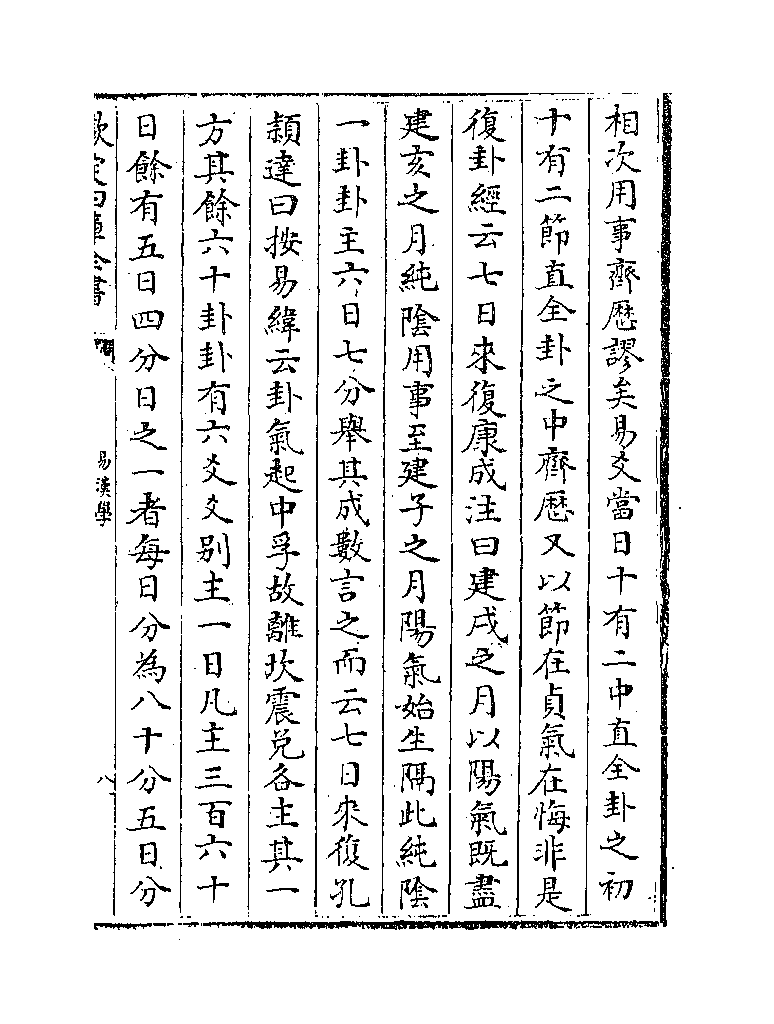 相次用事齊厯謬矣易爻當日十有二中直全卦之初
十有二節直全卦之中齊厯又以節在貞氣在悔非是
復卦經云七日來復康成注曰建戌之月以陽氣既盡
建亥之月純陰用事至建子之月陽氣始生隔此純陰
一卦卦主六日七分舉其成數言之而云七日來復孔
穎達曰按易緯云卦氣起中孚故離坎震兌各主其一
方其餘六十卦卦有六爻爻别主一日凡主三百六十
日餘有五日四分日之一者每日分為八十分五日分
欽定四庫全書
易漢學
八